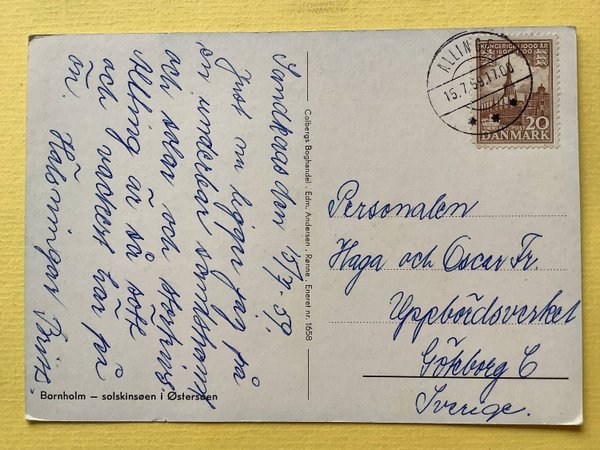 Sandkaas den 15/7. 59.
Just nu ligger jag på
en underbar sandstrand
och solar och
är så sött
och vackert här på
ön.
Hälsningar Britt
Bornholm – solskinsøen i Østersøen
Colbergs Boghandel . Edm. Andersen . Rønne. Eneret nr. 1658
ALLING
15.7.59.17.00
KONGERIGE I 1000 ÅR
POST 20
DANMARK
Personalen
Haga och Oscar Fr.
Uppbördsverket
Göteborg C
Sverige.